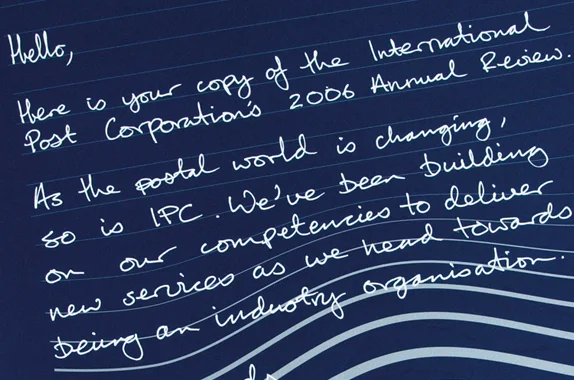 Hello,
Here is your copy of the International
Post Corporation's 2006 Annual Review.
As the postal world is changing,
so is IPC. We've been building
on our competencies to deliver
new services as we head towards
being an industry organisation.